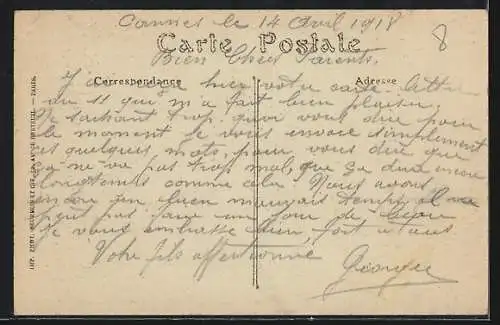 Cannes le 14 Avril 1918
8
Carte Postale
Bien Chers Parents,
Correspondance
Adresse
J'ai reçu hier votre carte lettre
du 11 qui m'a fait bien plaisir,
Ne sachant trop quoi vous dire pour
le moment je vous envoie simplement
ces quelques mots, pour vous dire que
ça ne va pas trop mal, que ça dure encore
longtemps comme cela. Nous avons
encore un bien mauvais temps il ne
peut pas faire un jour de beau
Je vous embrasse bien fort à tous
Votre fils affectionné
Georges
IMP. PARIS.